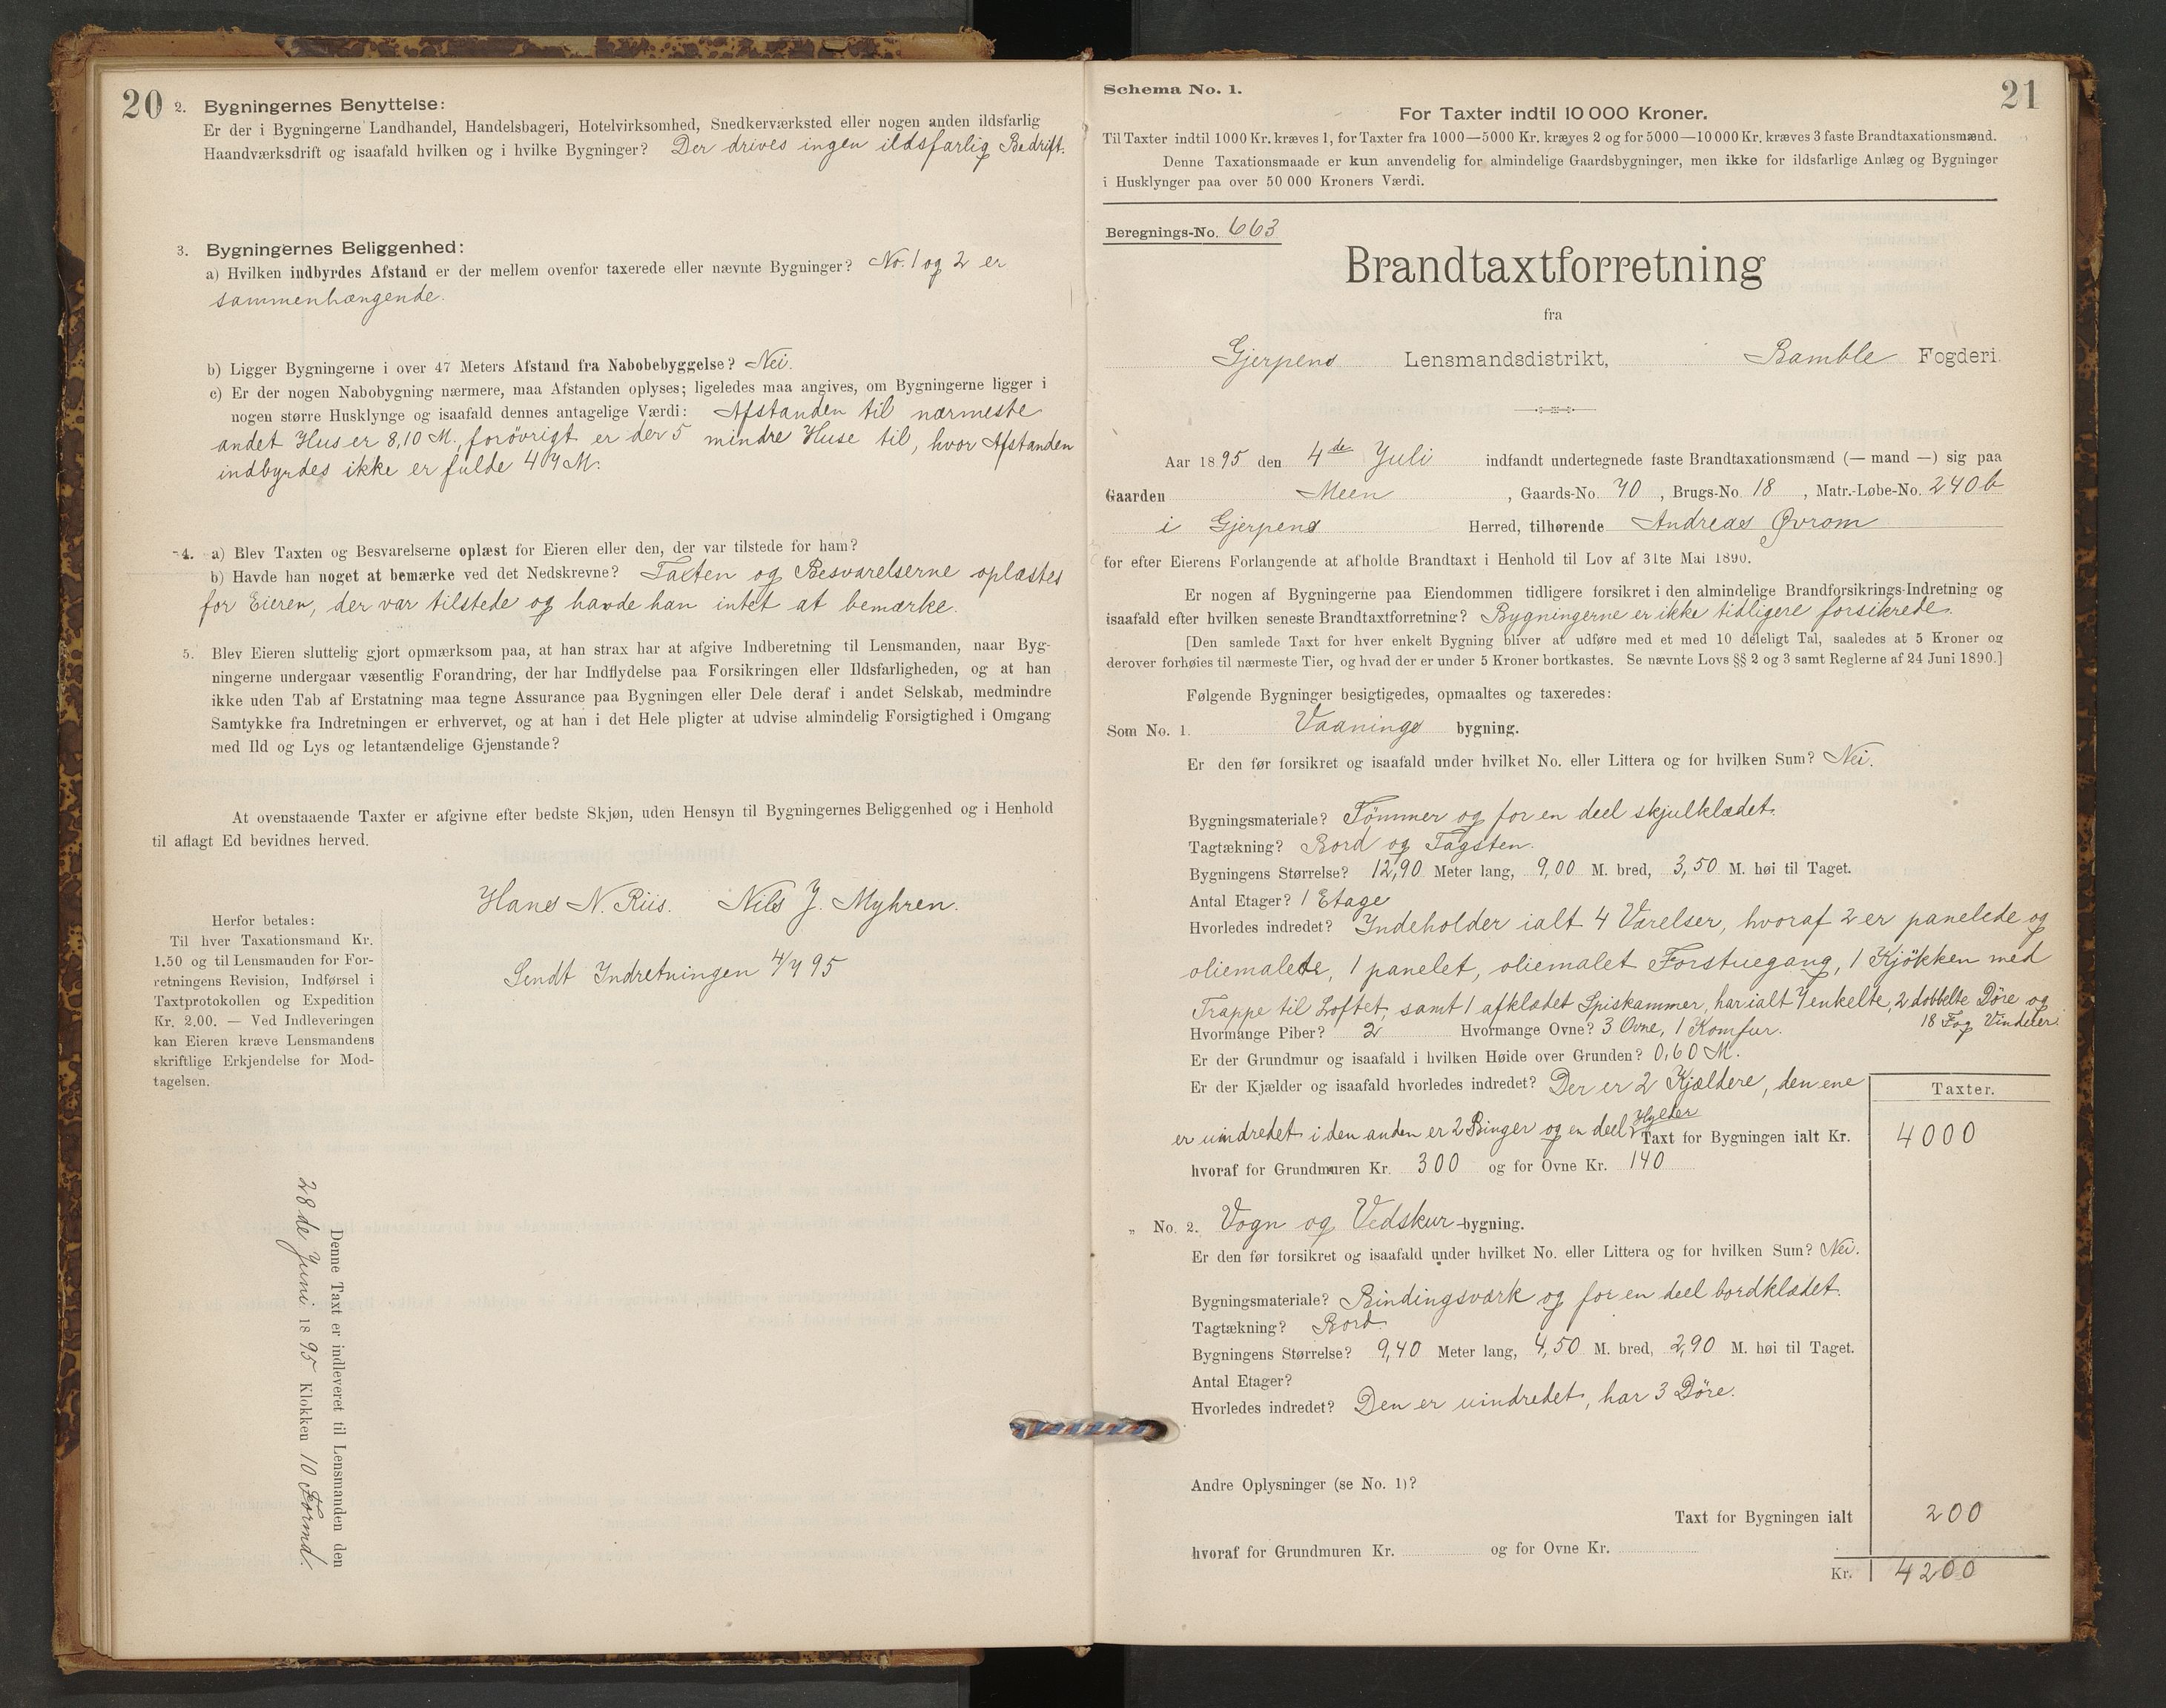 20
2. Bygningernes Benyttelse:
Er der i Bygningerne Landhandel, Handelsbageri, Hotelvirksomhed, Snedkerværksted eller nogen anden ildsfarlig
Haandværksdrift og isaafald hvilken og i hvilke Bygninger? Der drives ingen ildsfarlig Bedrift.
3. Bygningernes Beliggenhed:
a) Hvilken indbyrdes Afstand er der mellem ovenfor taxerede eller nævnte Bygninger? No. 1 og 2 er
sammenhængende.
b) Ligger Bygningerne i over 47 Meters Afstand fra Nabobebyggelse? Nei.
c) Er der nogen Nabobygning nærmere, maa Afstanden oplyses; ligeledes maa angives, om Bygningerne ligger i
nogen større Husklynge og isaafald dennes antagelige Værdi: Afstanden til nærmeste
andet Hus er 8,10 M., forövrigt er der 5 mindre Huse til, hvor Afstanden
indbyrdes ikke er fulde 47 M.
4. a) Blev Taxten og Besvarelserne oplæst for Eieren eller den, der var tilstede for ham?
b) Havde han noget at bemærke ved det Nedskrevne? Taxten og Besvarelserne oplæstes
for Eieren, der var tilstede og havde han intet at bemærke.
5. Blev Eieren sluttelig gjort opmærksom paa, at han strax har at afgive Indberetning til Lensmanden, naar Byg-
ningerne undergaar væsentlig Forandring, der har Indflydelse paa Forsikringen eller Ildsfarligheden, og at han
ikke uden Tab af Erstatning maa tegne Assurance paa Bygningen eller Dele deraf i andet Selskab, medmindre
Samtykke fra Indretningen er erhvervet, og at han i det Hele pligter at udvise almindelig Forsigtighed i Omgang
med Ild og Lys og letantændelige Gjenstande?
At ovenstaaende Taxter er afgivne efter bedste Skjøn, uden Hensyn til Bygningernes Beliggenhed og i Henhold
til aflagt Ed bevidnes herved.
Hans N. Riis. Nils J. Myhren.
Sendt Indretningen 4/7 95
Herfor betales:
Til hver Taxationsmand Kr.
1.50 og til Lensmanden for For-
retningens Revision, Indførsel i
Taxtprotokollen og Expedition
Kr. 2.00. — Ved Indleveringen
kan Eieren kræve Lensmandens
skriftlige Erkjendelse for Mod-
tagelsen.
Denne Taxt er indleveret til Lensmanden den
28de Juni 1895 Klokken 10 Formd.
21
Schema No. 1.
For Taxter indtil 10 000 Kroner.
Til Taxter indtil 1000 Kr. kræves 1, for Taxter fra 1000—5000 Kr. kræves 2 og for 5000—10 000 Kr. kræves 3 faste Brandtaxationsmænd.
Denne Taxationsmaade er kun anvendelig for almindelige Gaardsbygninger, men ikke for ildsfarlige Anlæg og Bygninger
i Husklynger paa over 50 000 Kroners Værdi.
Beregnings-No. 663
Brandtaxtforretning
fra
Gjerpens Lensmandsdistrikt, Bamble Fogderi.
Aar 1895 den 4de Juli indfandt undertegnede faste Brandtaxationsmænd (— mand —) sig paa
Gaarden Meen, Gaards-No. 70, Brugs-No. 18, Matr.-Løbe-No. 240 b
i Gjerpens Herred, tilhørende Andreas Øvrom
for efter Eierens Forlangende at afholde Brandtaxt i Henhold til Lov af 31te Mai 1890.
Er nogen af Bygningerne paa Eiendommen tidligere forsikret i den almindelige Brandforsikrings-Indretning og
isaafald efter hvilken seneste Brandtaxtforretning? Bygningerne er ikke tidligere forsikrede.
[Den samlede Taxt for hver enkelt Bygning bliver at udføre med et med 10 deleligt Tal, saaledes at 5 Kroner og
derover forhøies til nærmeste Tier, og hvad der er under 5 Kroner bortkastes. Se nævnte Lovs §§ 2 og 3 samt Reglerne af 24 Juni 1890.]
Følgende Bygninger besigtigedes, opmaaltes og taxeredes:
Som No. 1. Vaanings bygning.
Er den før forsikret og isaafald under hvilket No. eller Littera og for hvilken Sum? Nei.
Bygningsmateriale? Tömmer og for en deel skjulklædet.
Tagtækning? Bord og Tagsten.
Bygningens Størrelse? 12,90 Meter lang, 9,00 M. bred, 3,50 M. høi til Taget.
Antal Etager? 1 Etage
Hvorledes indredet? Indeholder ialt 4 Værelser, hvoraf 2 er panelede og
oliemalede, 1 panelet, oliemalet Forstuegang, 1 Kjökken med
Trappe til Loftet, samt 1 afklædet Spiskammer, har ialt 7 enkelte, 2 dobbelte Döre og
18 Fag Vinduer.
Hvormange Piber? 2 Hvormange Ovne? 3 Ovne, 1 Komfur.
Er der Grundmur og isaafald i hvilken Høide over Grunden? 0,60 M.
Er der Kjælder og isaafald hvorledes indredet? Der er 2 Kjældere, den ene
Taxter.
er uindredet i den anden er 2 Binger og en deel Hylder
Taxt for Bygningen ialt Kr. 4000
hvoraf for Grundmuren Kr. 300 og for Ovne Kr. 140
„ No. 2. Vogn og Vedskur-bygning.
Er den før forsikret og isaafald under hvilket No. eller Littera og for hvilken Sum? Nei.
Bygningsmateriale? Bindingsværk og for en deel bordklædet.
Tagtækning? Bord.
Bygningens Størrelse? 9,40 Meter lang, 4,50 M. bred, 2,90 M. høi til Taget.
Antal Etager?
Hvorledes indredet? Den er uindredet, har 3 Döre.
Andre Oplysninger (se No. 1)?
Taxt for Bygningen ialt 200
hvoraf for Grundmuren Kr. og for Ovne Kr.
Kr. 4200